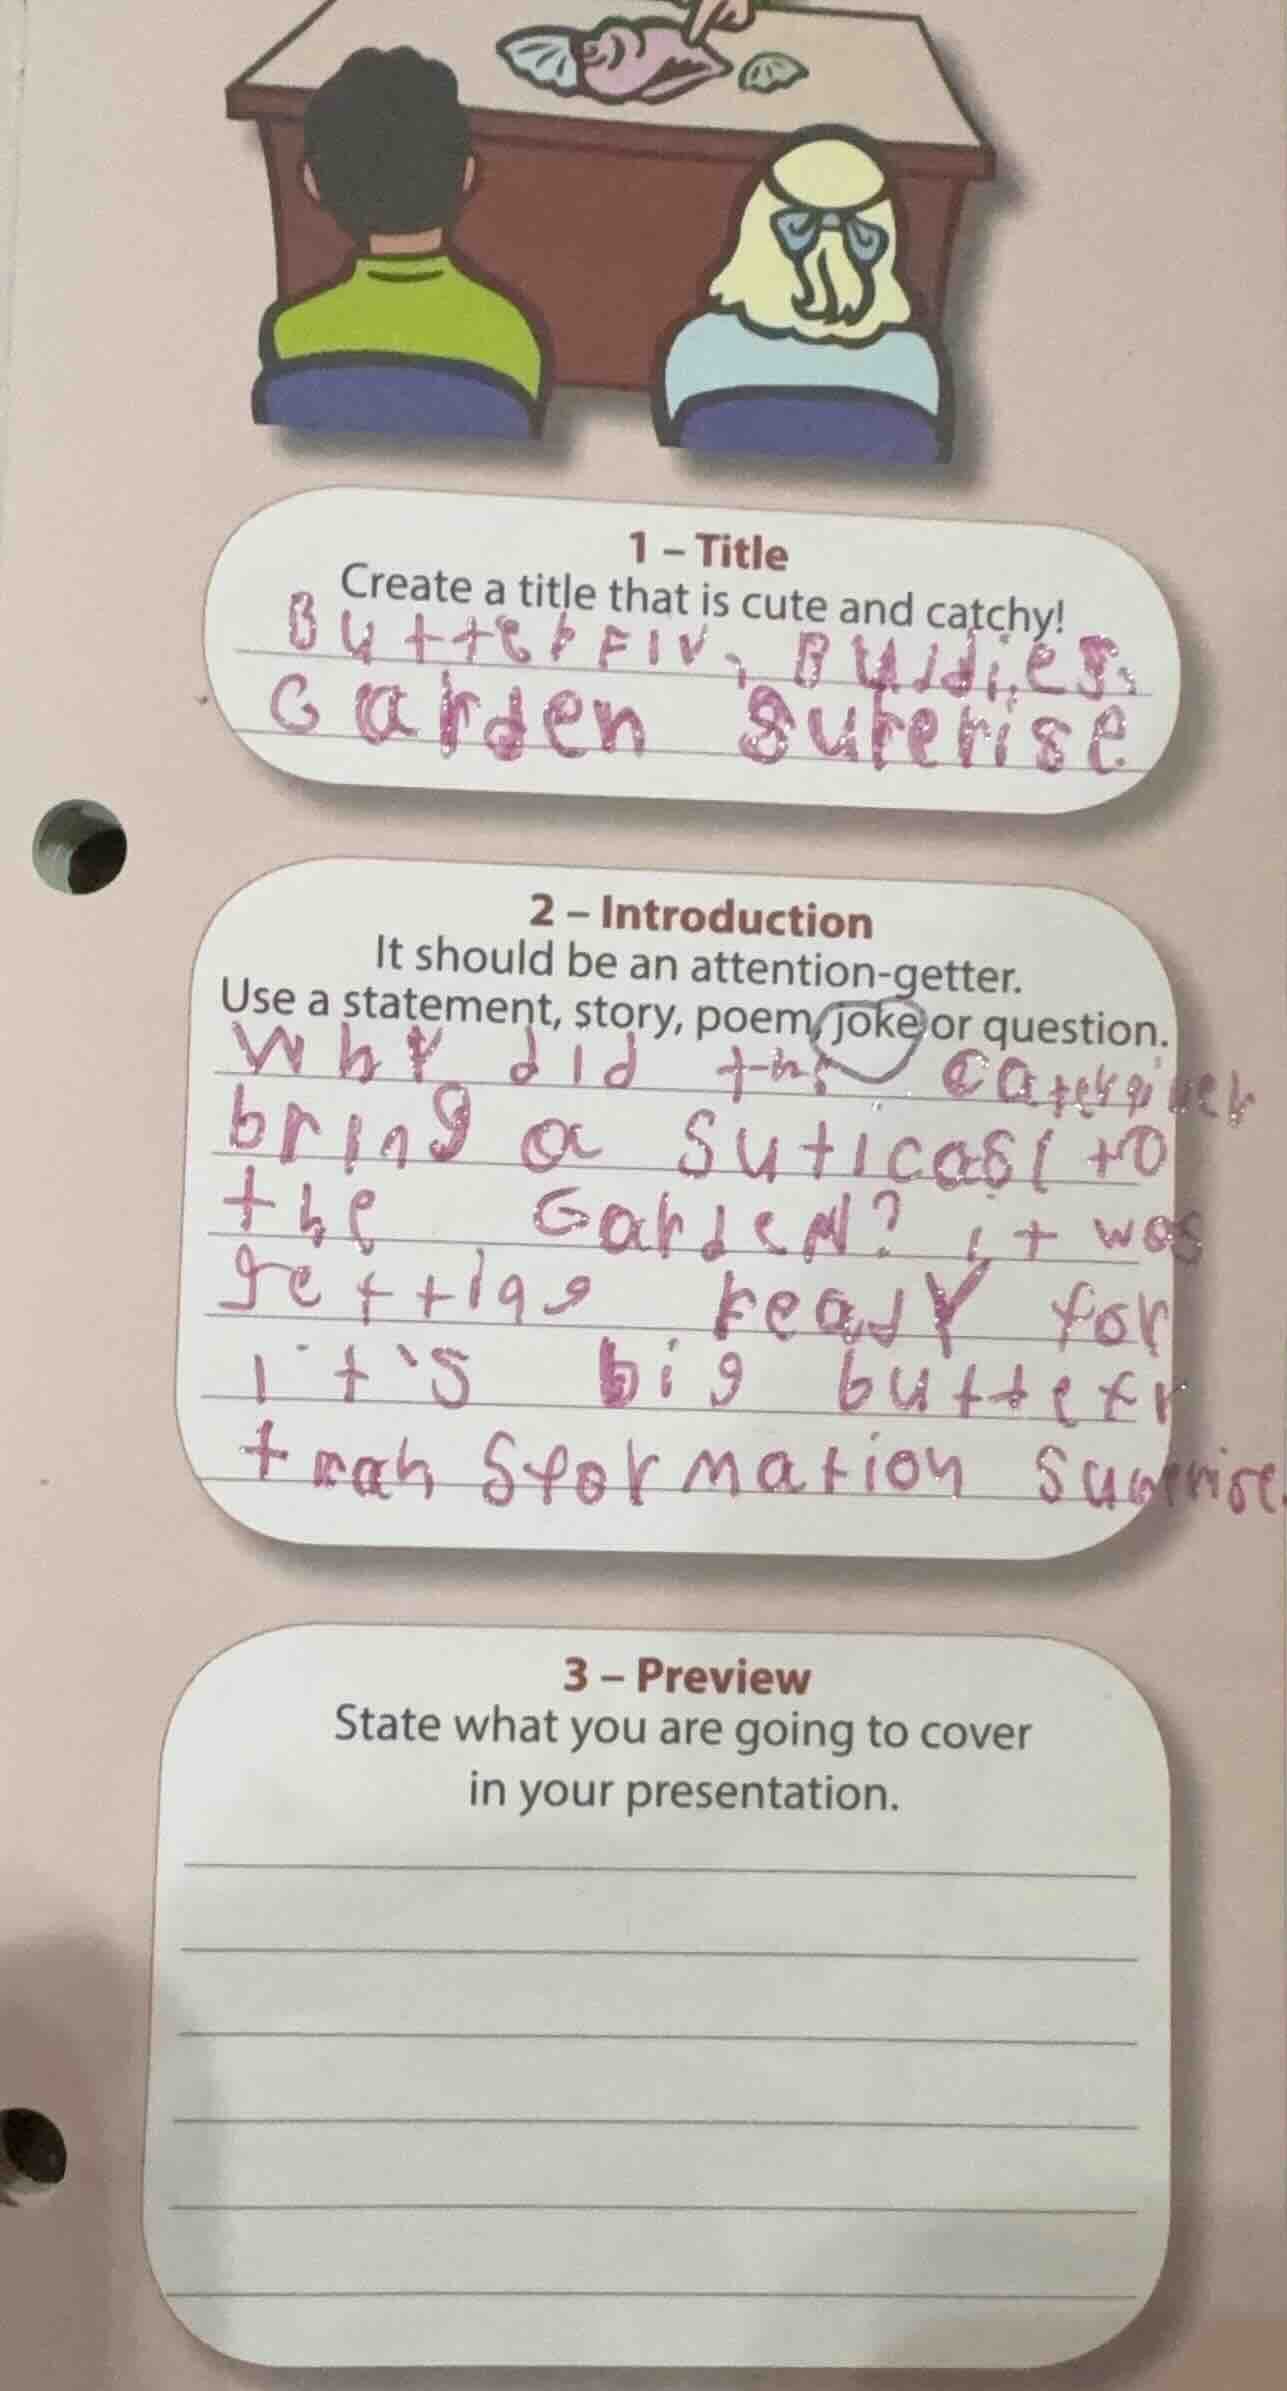 1 – Title
Create a title that is cute and catchy!
ButterFly, Buddies,
Garden Surerise
2 – Introduction
It should be an attention-getter.
Use a statement, story, poem, joke or question.
Why did the
bring a suticase to
the Garden? it was
gettige ready for
it's big butterf
transformation
3 – Preview
State what you are going to cover
in your presentation.